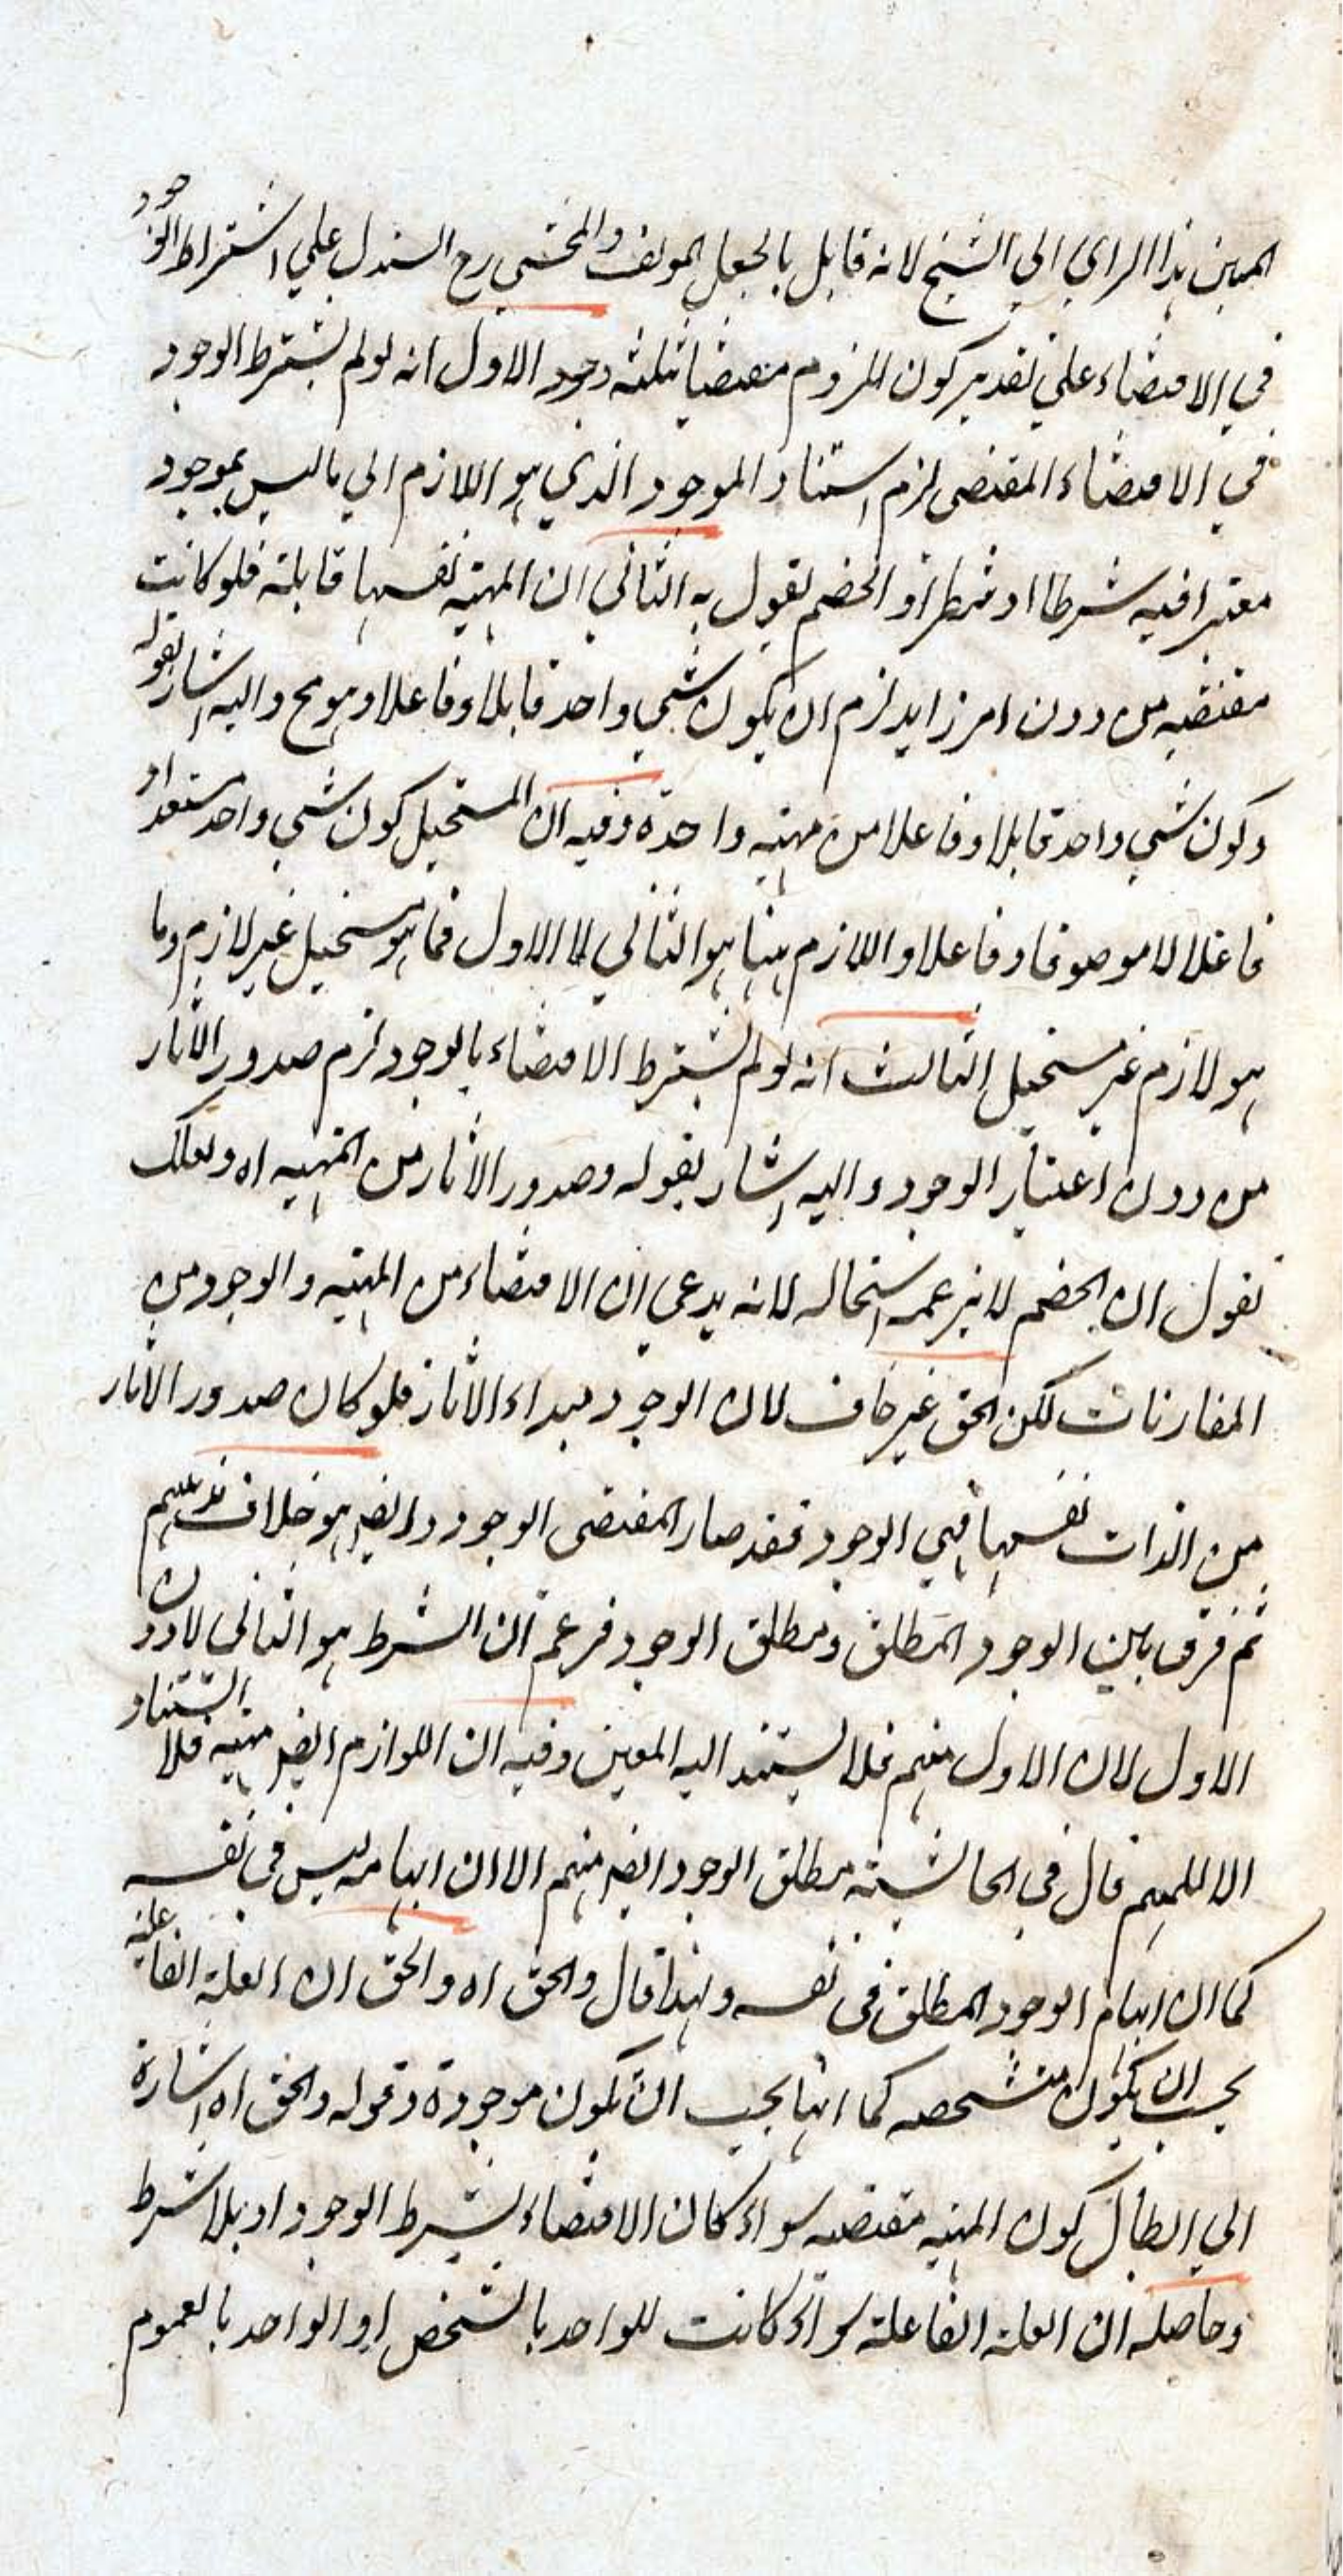 المبين هذا الراي الي الشيخ لانه قايل بالجعل المولف والمحشي رح استدل علي اشتراط الوجود
في الاقتضاء علي تقدير كون الملزوم مقتضيا بثلثه وجوه الاول انه لو لم يشترط الوجود
في الاقتضاء المقتضي لزم استناد الموجود الذي هو اللازم الي ما ليس بموجود
معتبرا فيه شرطا او شطرا و الخصم يقول به الثاني ان المهية نفسها قابلة فلو كانت
مقتضيه من دون امر زايد لزم ان يكون شي واحد قابلا وفاعلا وهو مح واليه اشار بقوله
وكون شي واحد قابلا وفاعلا من مهيته واحدة وفيه ان المستحيل كون شي واحد مستعدا و
فاعلا لا موصوفا وفاعلا و اللازم ههنا هو الثاني لا الاول فما هو مستحيل غير لازم وما
هو لازم غير مستحيل الثالث انه لو لم يشترط الاقتضاء بالوجود لزم صدور الاثار
من دون اعتبار الوجود واليه اشار بقوله وصدور الاثار من المهيه اه ولعلك
تقول ان الخصم لا يزعمه استحاله لانه يدعي ان الاقتضاء من المهيه و الوجود من
المقارنات لكن الحق غير خاف لان الوجود مبداء الاثار فلو كان صدور الاثار
من الذات نفسها فهي الوجود فقد صار المقتضي الوجود و ايضا هو خلاف مذهبهم
ثم فرق بين الوجود المطلق ومطلق الوجود فزعم ان الشرط هو الثاني لا دون
الاول لان الاول مبهم فلا يستند اليه المعين وفيه ان اللوازم ايضا مبهمه فلا استناد
الا للمبهم قال في الحاشيته مطلق الوجود ايضا مبهم الا ان ابهامه ليس في نفسه
كما ان ابهام الوجود المطلق في نفسه ولهذا قال والحق اه و الحق ان العلة الفاعلية
يجب ان يكون متشخصه كما انها يجب ان تكون موجودة وقوله والحق اه اشارة
الي ابطال كون المهيه مقتضيه سواء كان الاقتضاء بشرط الوجود او بلا شرط
وحاصله ان العلة الفاعلة سواء كانت للواحد بالشخص او الواحد بالعموم